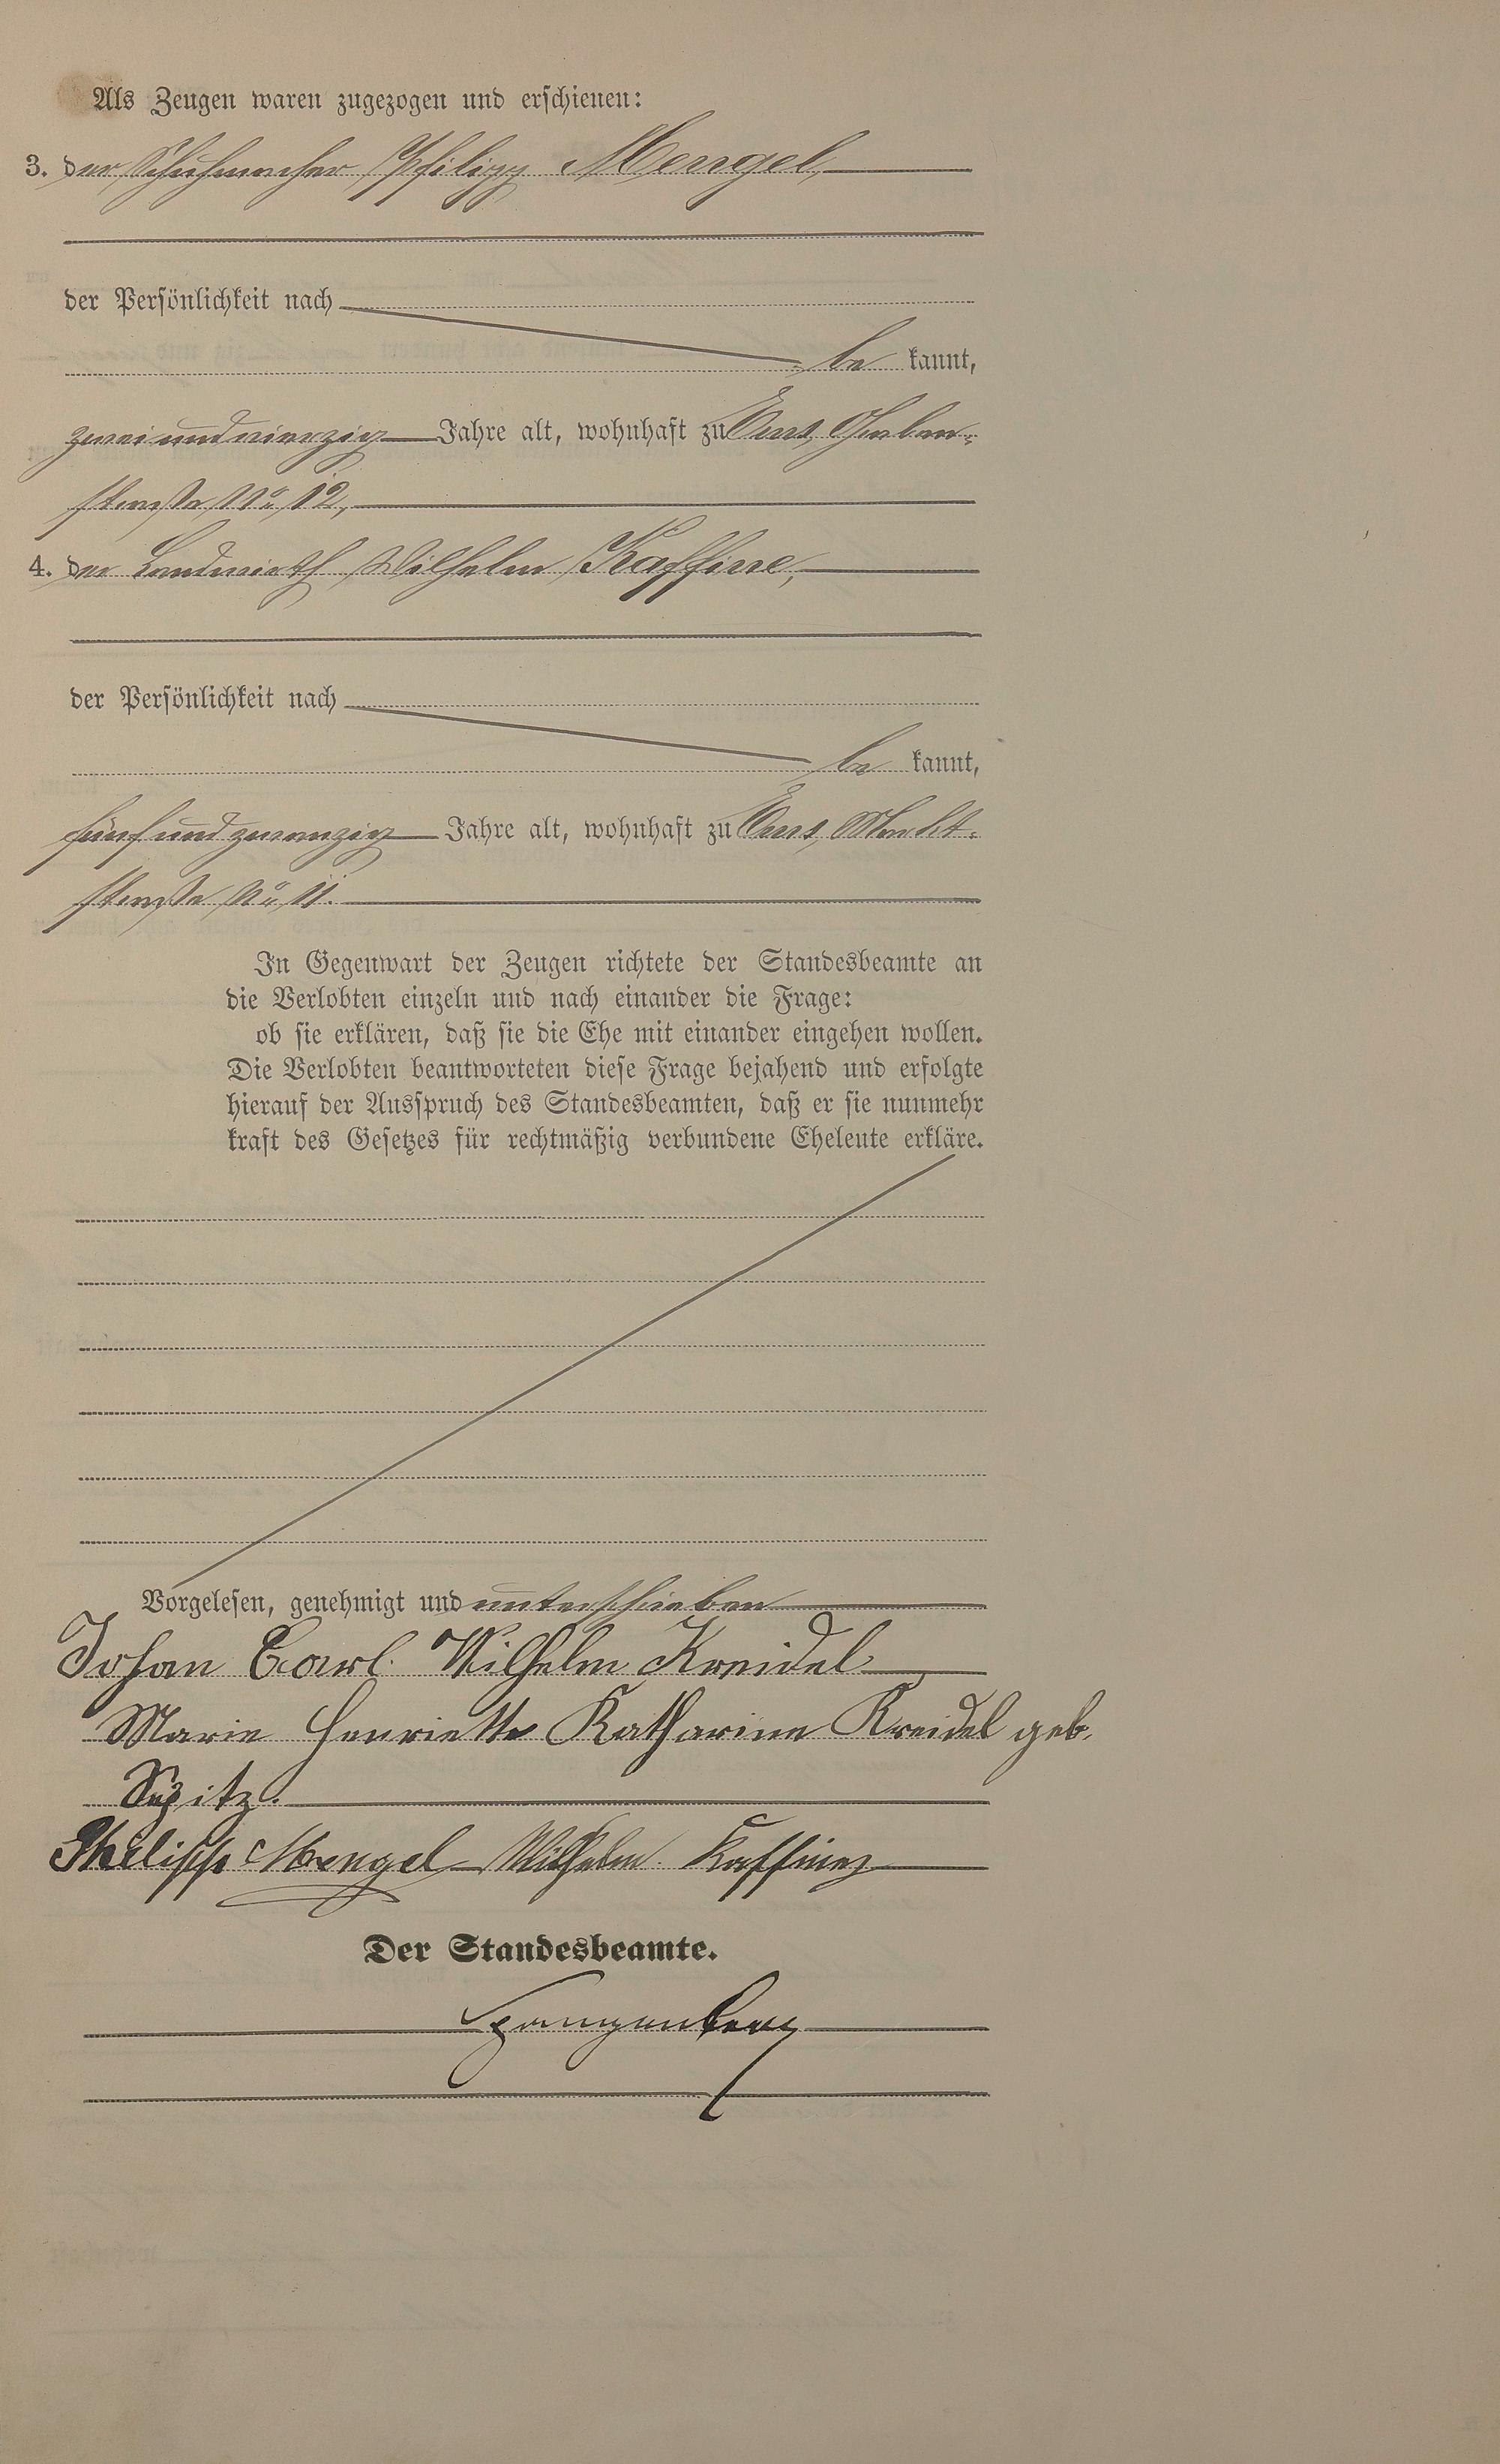 Als Zeugen waren zugezogen und erschienen:
3. der Schuhmacher Philipp Mengel,
der Persönlichkeit nach
be kannt,
zwei und vierzig Jahre alt, wohnhaft zu Ems, Graben-
straße No 12,
4. der Landwirth Wilhelm Kaffine,
der Persönlichkeit nach
be kannt,
fünf und zwanzig Jahre alt, wohnhaft zu Ems, Markt-
straße No 11.
In Gegenwart der Zeugen richtete der Standesbeamte an
die Verlobten einzeln und nach einander die Frage:
ob sie erklären, daß sie die Ehe mit einander eingehen wollen.
Die Verlobten beantworteten diese Frage bejahend und erfolgte
hierauf der Ausspruch des Standesbeamten, daß er sie nunmehr
kraft des Gesetzes für rechtmäßig verbundene Eheleute erkläre.
Vorgelesen, genehmigt und unterschrieben
Johan Carl Wilhelm Kreidel
Marie Henriette Katharine Kreidel geb.
Philipp Mengel Wilhelm
Der Standesbeamte.
Spangenberg